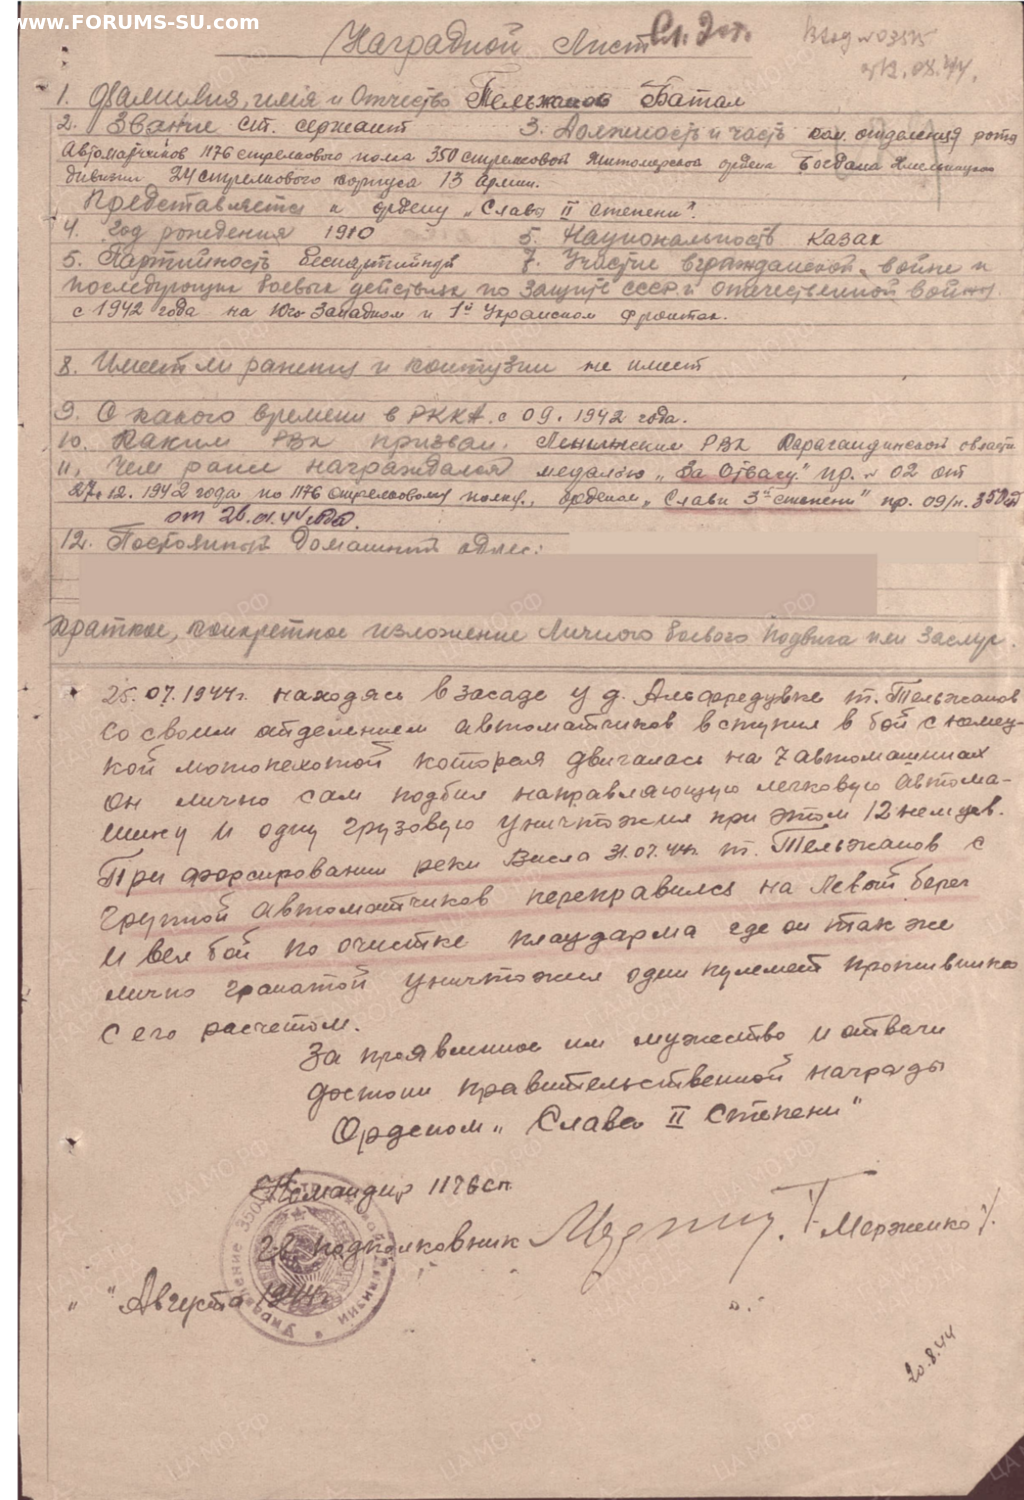 www.FORUMS-SU.com
Наградной Лист Сл. 2 ст.
Вход № 03575
12.08.44.
1. Фамилия, имя и Отчество Тельжанов Батал
2. Звание ст. сержант 3. Должность и часть ком. отделения роты
Автоматчиков 1176 стрелкового полка 350 стрелковой Житомирской ордена Богдана Хмельницкого
дивизии 24 стрелкового корпуса 13 Армии.
Представляется к ордену „Слава II степени".
4. Год рождения 1910 5. Национальность казак
5. Партийность беспартийный 7. Участие в гражданской войне и
последующих боевых действиях по защите СССР и отечественной войне
с 1942 года на Юго-Западном и 1й Украинском фронтах.
8. Имеет ли ранения и контузии не имеет
9. С какого времени в РККА. с 09. 1942 года.
10. Каким РВК призван. РВК Карагандинской области
11. Чем ранее награждался медалью „За Отвагу" пр. № 02 от
27.12.1942 года по 1176 стрелковому полку, орденом „Слава 3й степени" пр. 09/н. 350 сд
от 26.01.44 года.
12. Постоянный домашний адрес:
Краткое, конкретное изложение личного боевого подвига или заслуг.
25.07.1944г. находясь в засаде у д. Альфредувке т. Тельжанов
со своим отделением автоматчиков вступил в бой с немец-
кой мотопехотой которая двигалась на 7 автомашинах
он лично сам подбил направляющую легковую автома-
шину и одну грузовую уничтожил при этом 12 немцев.
При форсировании реки Висла 31.07.44г. т. Тельжанов с
группой автоматчиков переправился на левый берег
и вел бой по очистке плацдарма где он так же
лично гранатой уничтожил один пулемет противника
с его расчетом.
За проявленное им мужество и отваги
достоин правительственной награды
Орденом „Слава II Степени"
Командир 1176 сп
гв. подполковник /Мерженко/.
„ " Августа 1944г.
20.8.44